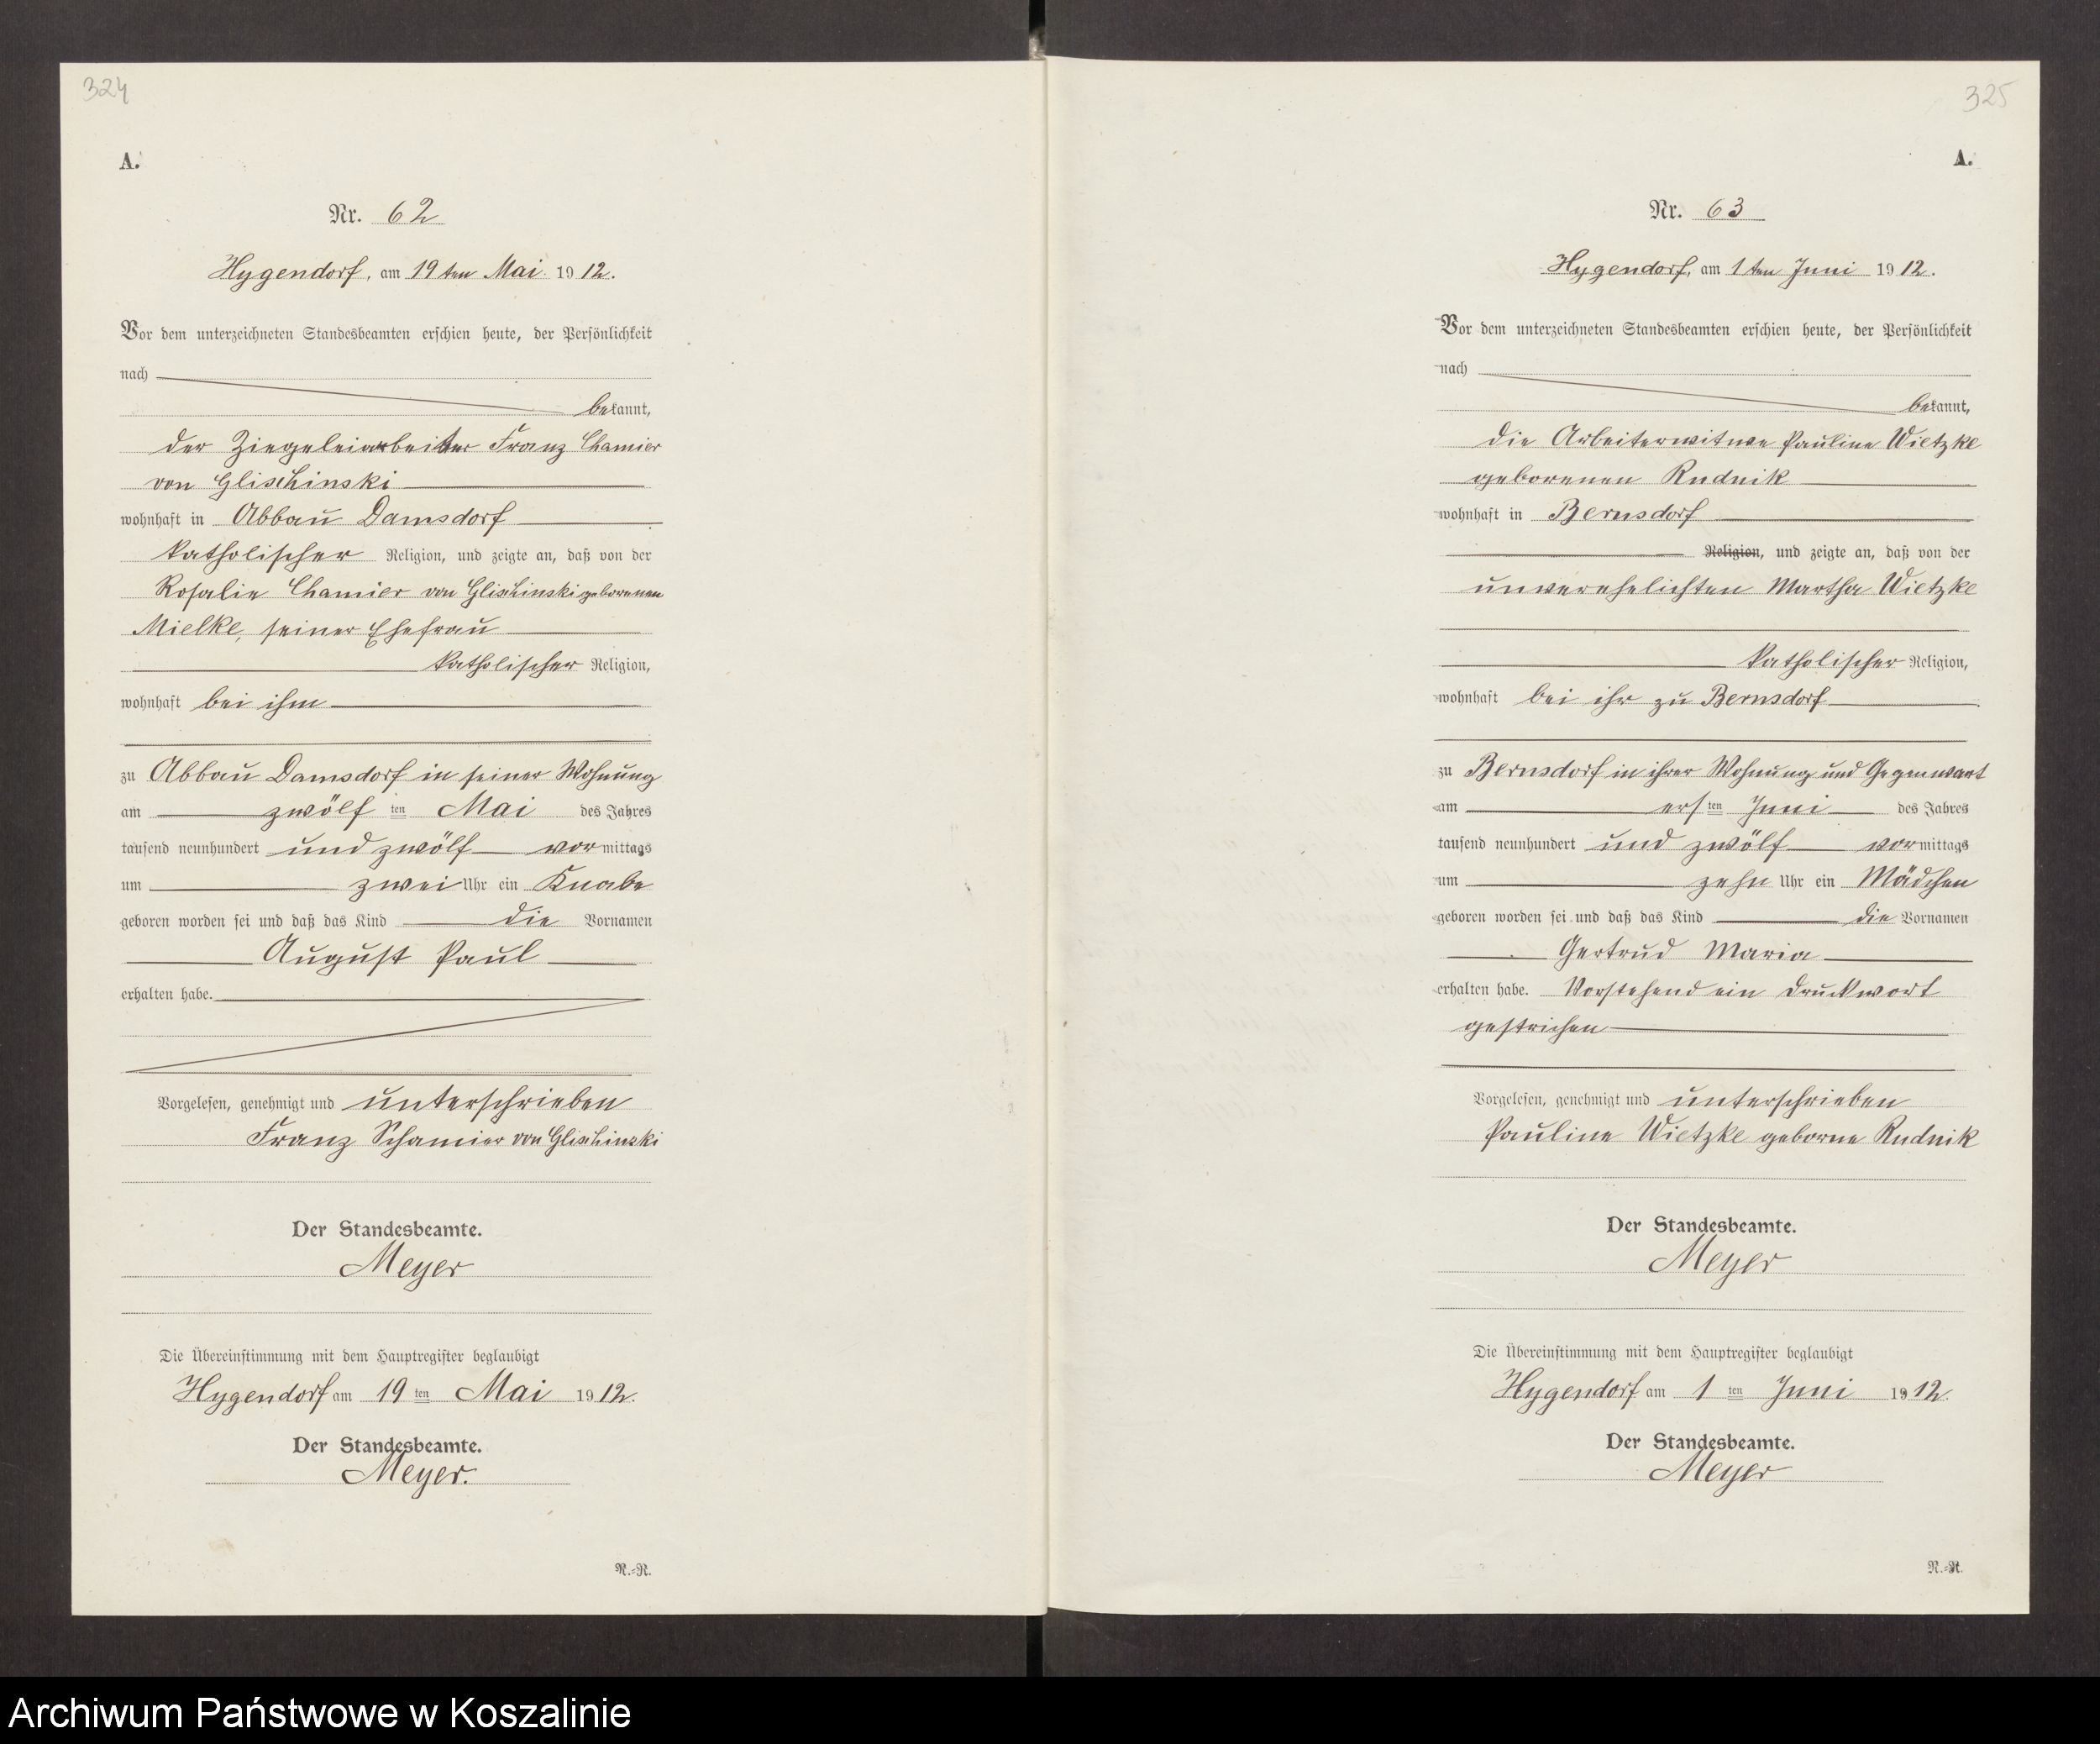 324
A.
Nr. 62
Hygendorf, am 19 ten Mai 1912.
Vor dem unterzeichneten Standesbeamten erschien heute, der Persönlichkeit
nach
bekannt,
der Ziegeleiarbeiter Franz Chamier
von Glischinski
wohnhaft in Abbau Damsdorf
katholischer Religion, und zeigte an, daß von der
Rosalie Chamier von Glischinski geborenen
Mielke, seiner Ehefrau
katholischer Religion,
wohnhaft bei ihm
zu Abbau Damsdorf in seiner Wohnung
am zwölf ten Mai des Jahres
tausend neunhundert und zwölf vormittags
um zwei Uhr ein Knabe
geboren worden sei und daß das Kind die Vornamen
August Paul
erhalten habe.
Vorgelesen, genehmigt und unterschrieben
Franz Schamier von Glischinzki
Der Standesbeamte.
Meyer
Die Übereinstimmung mit dem Hauptregister beglaubigt
Hygendorf am 19 ten Mai 1912.
Der Standesbeamte.
Meyer.
N.=R.
325
A.
Nr. 63
Hygendorf, am 1 ten Juni 1912.
Vor dem unterzeichneten Standesbeamten erschien heute, der Persönlichkeit
nach
bekannt,
die Arbeiterwitwe Pauline Wietzke
geborenen Rudnik
wohnhaft in Bernsdorf
Religion, und zeigte an, daß von der
unverehelichten Martha Wietzke
katholischer Religion,
wohnhaft bei ihr zu Bernsdorf
zu Bernsdorf in ihrer Wohnung und Gegenwart
am ersten Juni des Jahres
tausend neunhundert und zwölf vormittags
um zehn Uhr ein Mädchen
geboren worden sei und daß das Kind die Vornamen
Gertrud Maria
erhalten habe. Vorstehend ein Druckwort
gestrichen
Vorgelesen, genehmigt und unterschrieben
Pauline Wietzke geborne Rudnik
Der Standesbeamte.
Meyer
Die Übereinstimmung mit dem Hauptregister beglaubigt
Hygendorf am 1 ten Juni 1912.
Der Standesbeamte.
Meyer
N.=R.
Archiwum Państwowe w Koszalinie